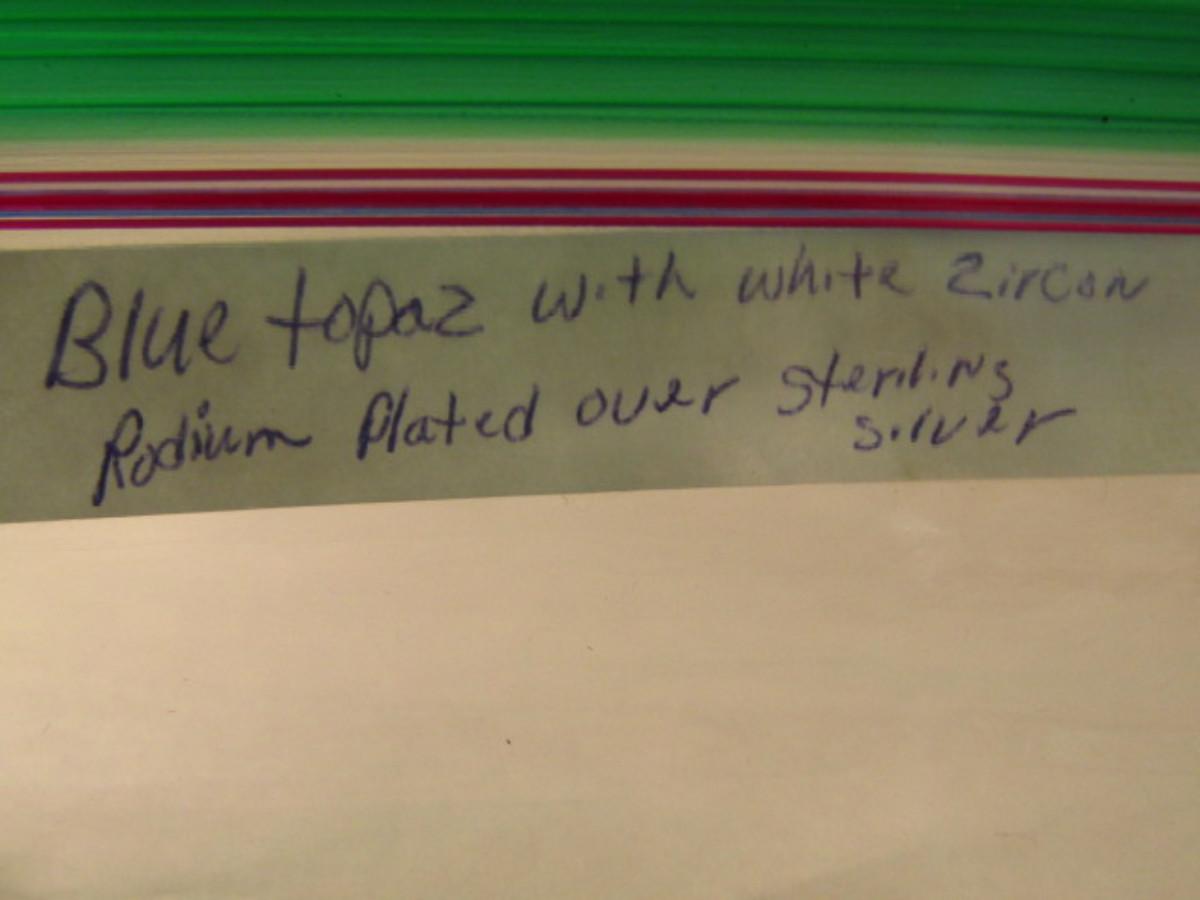 Blue topaz with white Zircon
Rodium Plated over sterling
silver